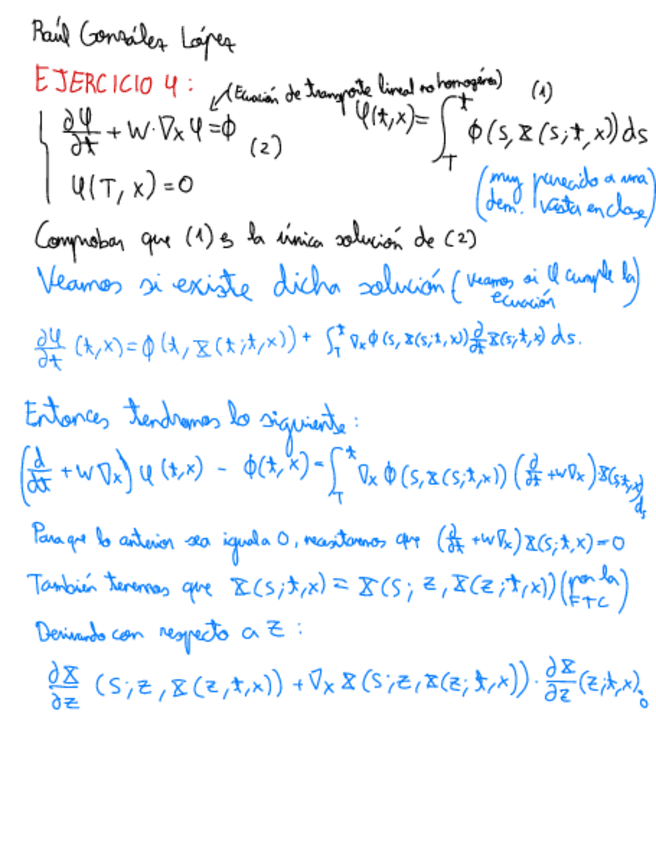 Raúl González López
EJERCICIO 4:
(Ecuación de transporte lineal no homogénea)
∂φ/∂t + W·∇ₓφ = ϕ (2)
φ(T, x) = 0
φ(t,x) = ∫_T^t ϕ(s, X(s;t,x)) ds (1)
(muy parecido a una dem. vista en clase)
Comprobar que (1) es la única solución de (2)
Veamos si existe dicha solución (veamos si φ cumple la ecuación)
∂φ/∂t (t,x) = ϕ(t, X(t;t,x)) + ∫_T^t ∇ₓϕ(s, X(s;t,x)) ∂/∂t X(s;t,x) ds.
Entonces tendremos lo siguiente:
(d/dt + W∇ₓ) φ(t,x) - ϕ(t,x) = ∫_T^t ∇ₓϕ(s, X(s;t,x)) (∂/∂t + W∇ₓ) X(s;t,x) ds
Para que lo anterior sea igual a 0, necesitaremos que (∂/∂t + W∇ₓ) X(s;t,x) = 0
También tenemos que X(s;t,x) = X(s; z, X(z;t,x)) (por la FTC)
Derivando con respecto a z:
∂X/∂z (s; z, X(z,t,x)) + ∇ₓX(s; z, X(z;t,x)) · ∂X/∂z (z;t,x) = 0